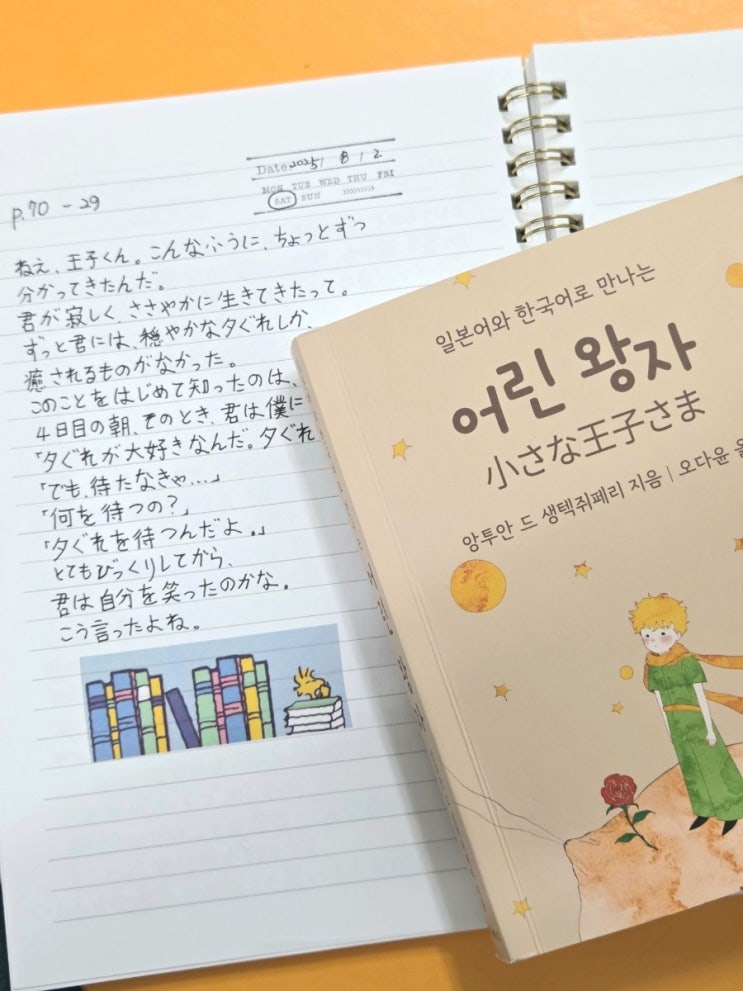 Date 2025/ 8 / 2
MON TUE WED THU FRI
SAT SUN »»»»»
p.70 - 29
ねえ、王子くん。こんなふうに、ちょっとずつ
分かってきたんだ。
君が寂しく、ささやかに生きてきたって。
ずっと君には、穏やかな夕ぐれしか、
癒されるものがなかった。
このことをはじめて知ったのは、
4日目の朝、そのとき、君は僕に
「夕ぐれが大好きなんだ。夕ぐれ
「でも、待たなきゃ...」
「何を待つの?」
「夕ぐれを待つんだよ。」
とてもびっくりしてから、
君は自分を笑ったのかな。
こう言ったよね。
일본어와 한국어로 만나는
어린 왕자
小さな王子さま
앙투안 드 생텍쥐페리 지음 | 오다윤 옮